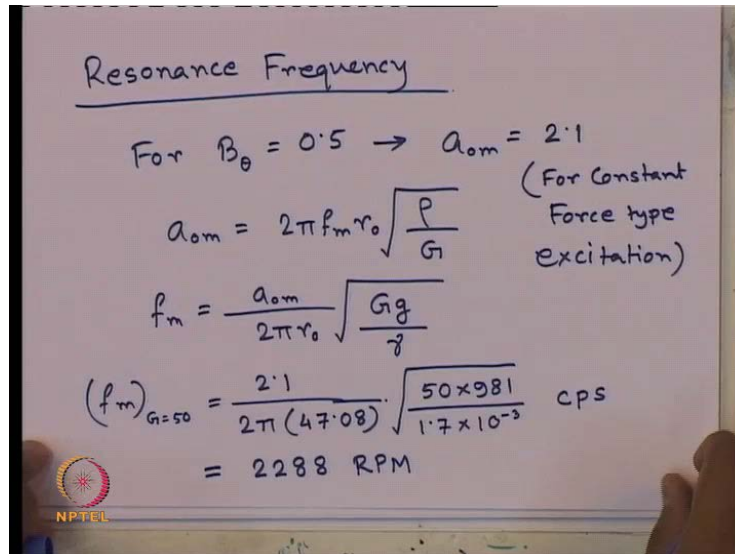 Resonance Frequency
For B_θ = 0.5 → a_om = 2.1
(For Constant
Force type
excitation)
a_om = 2π f_m r_o √(ρ/G)
f_m = a_om/(2π r_o) √(Gg/γ)
(f_m)_G=50 = 2.1/(2π(47.08)) · √(50×981/(1.7×10⁻³)) cps
= 2288 RPM
NPTEL